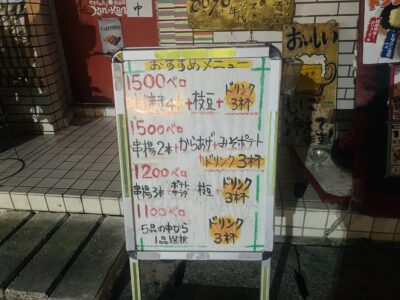 中
おすすめメニュー
1500ベロ
串焼き4本+枝豆+ドリンク3杯
1500ベロ
串揚2本+からあげ+みそポテト
+ドリンク3杯
1200ベロ
串揚3本+ポテトサラダ+枝豆+ドリンク3杯
1100ベロ
5品の中から
1品選択
ドリンク
3杯
おいしい